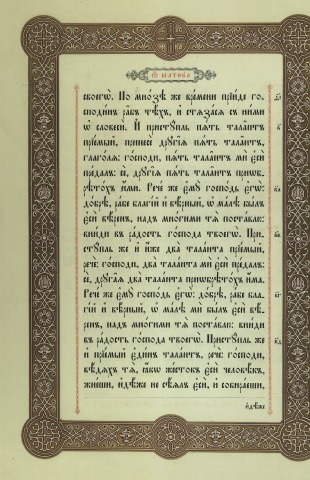 Ѿ матѳеа
своегѡ. По мнозѣ же времени прїиде го-
сподинъ рабъ тѣхъ, и стязася съ ними
ѡ словеси. И приступль пять талантъ
прїемый, принесе другїя пять талантъ,
глаголя: господи, пять талантъ ми еси
предалъ: се, другїя пять талантъ приѡб-
рѣтохъ ими. Рече же ему господь егѡ:
добрѣ, рабе благій и вѣрный, ѡ малѣ былъ
еси вѣренъ, надъ многими тя поставлю:
вниди въ радость господа твоегѡ. При-
ступль же и иже два таланта прїемый,
рече: господи, два таланта ми еси предалъ:
се, другая два таланта приѡбрѣтохъ има.
Рече же ему господь егѡ: добрѣ, рабе бла-
гій и вѣрный, ѡ малѣ ми былъ еси вѣ-
ренъ, надъ многими тя поставлю: вниди
въ радость господа твоегѡ. Приступль же
и прїемый единъ талантъ, рече: господи,
вѣдяхъ тя, якѡ жестокъ еси человѣкъ,
жнеши, идѣже не сѣялъ еси, и собираеши,
идѣже